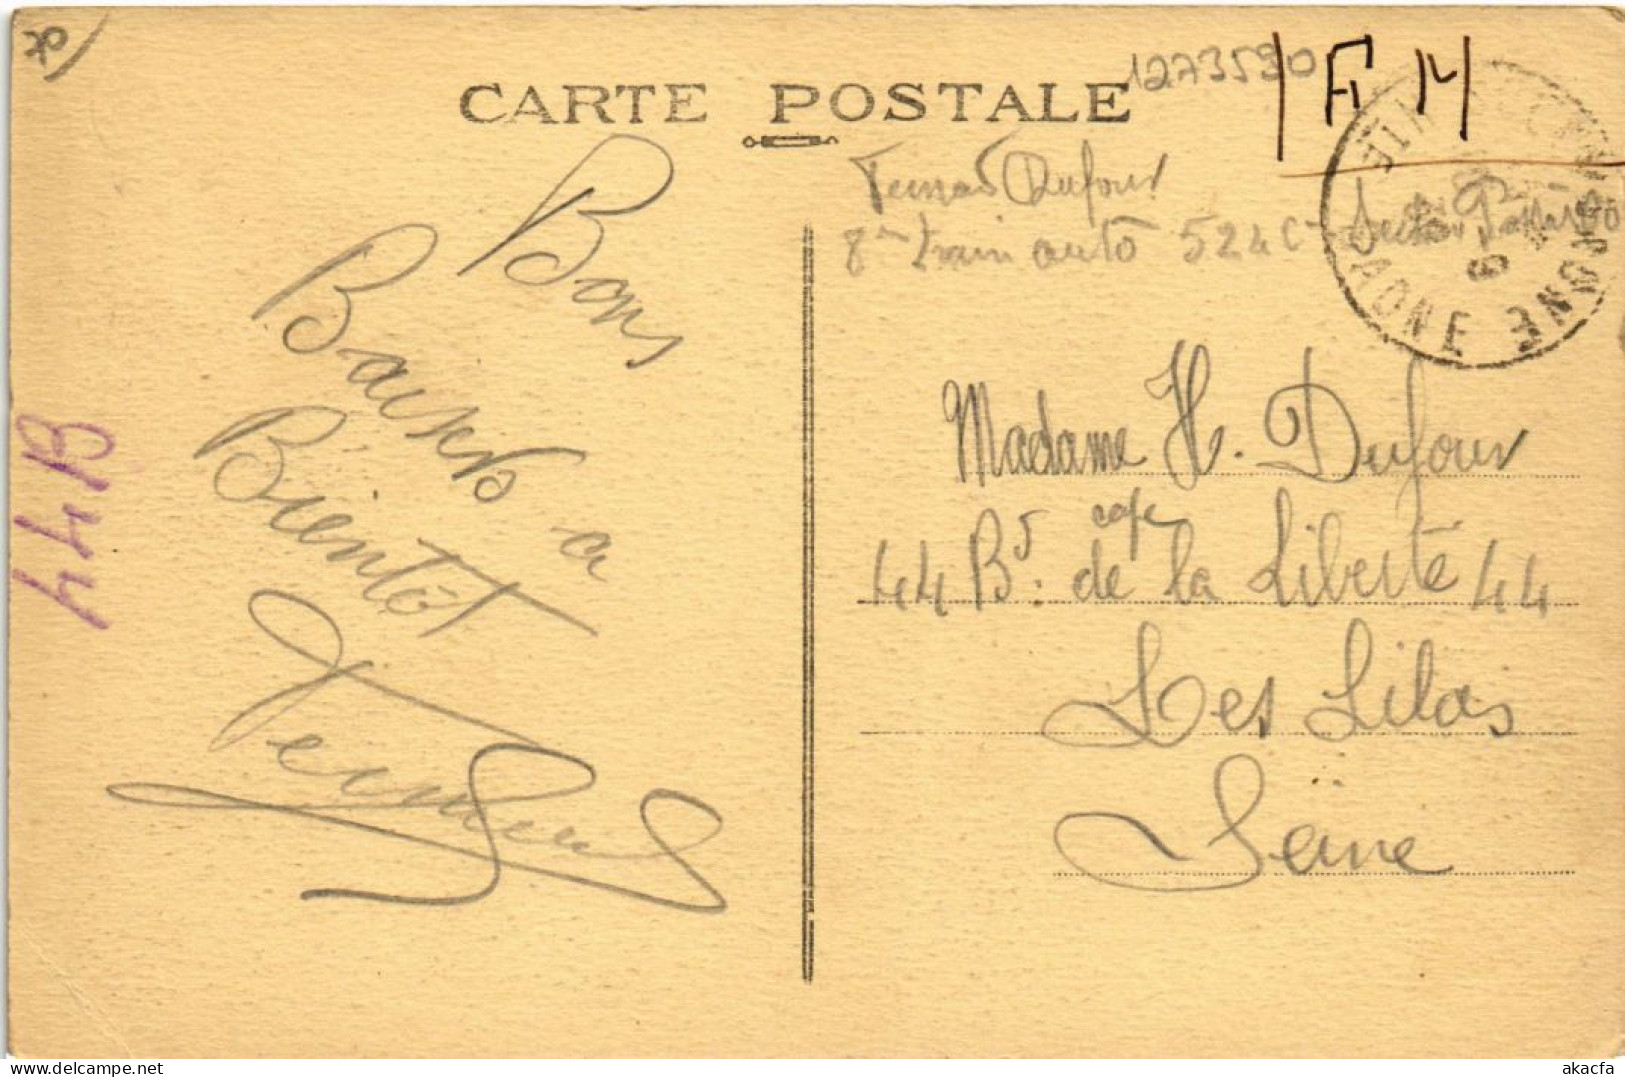 CARTE POSTALE
1273590
F M
Fernand Dufour
8me train auto 524 Cie Secteur Postal
SAONE
YONNE
Bons
Baisers a
Bientôt
Fernand
B44
Madame H. Dufour
cafe
44 Bd. de la Liberté 44
Les Lilas
Seine
www.delcampe.net
akacfa